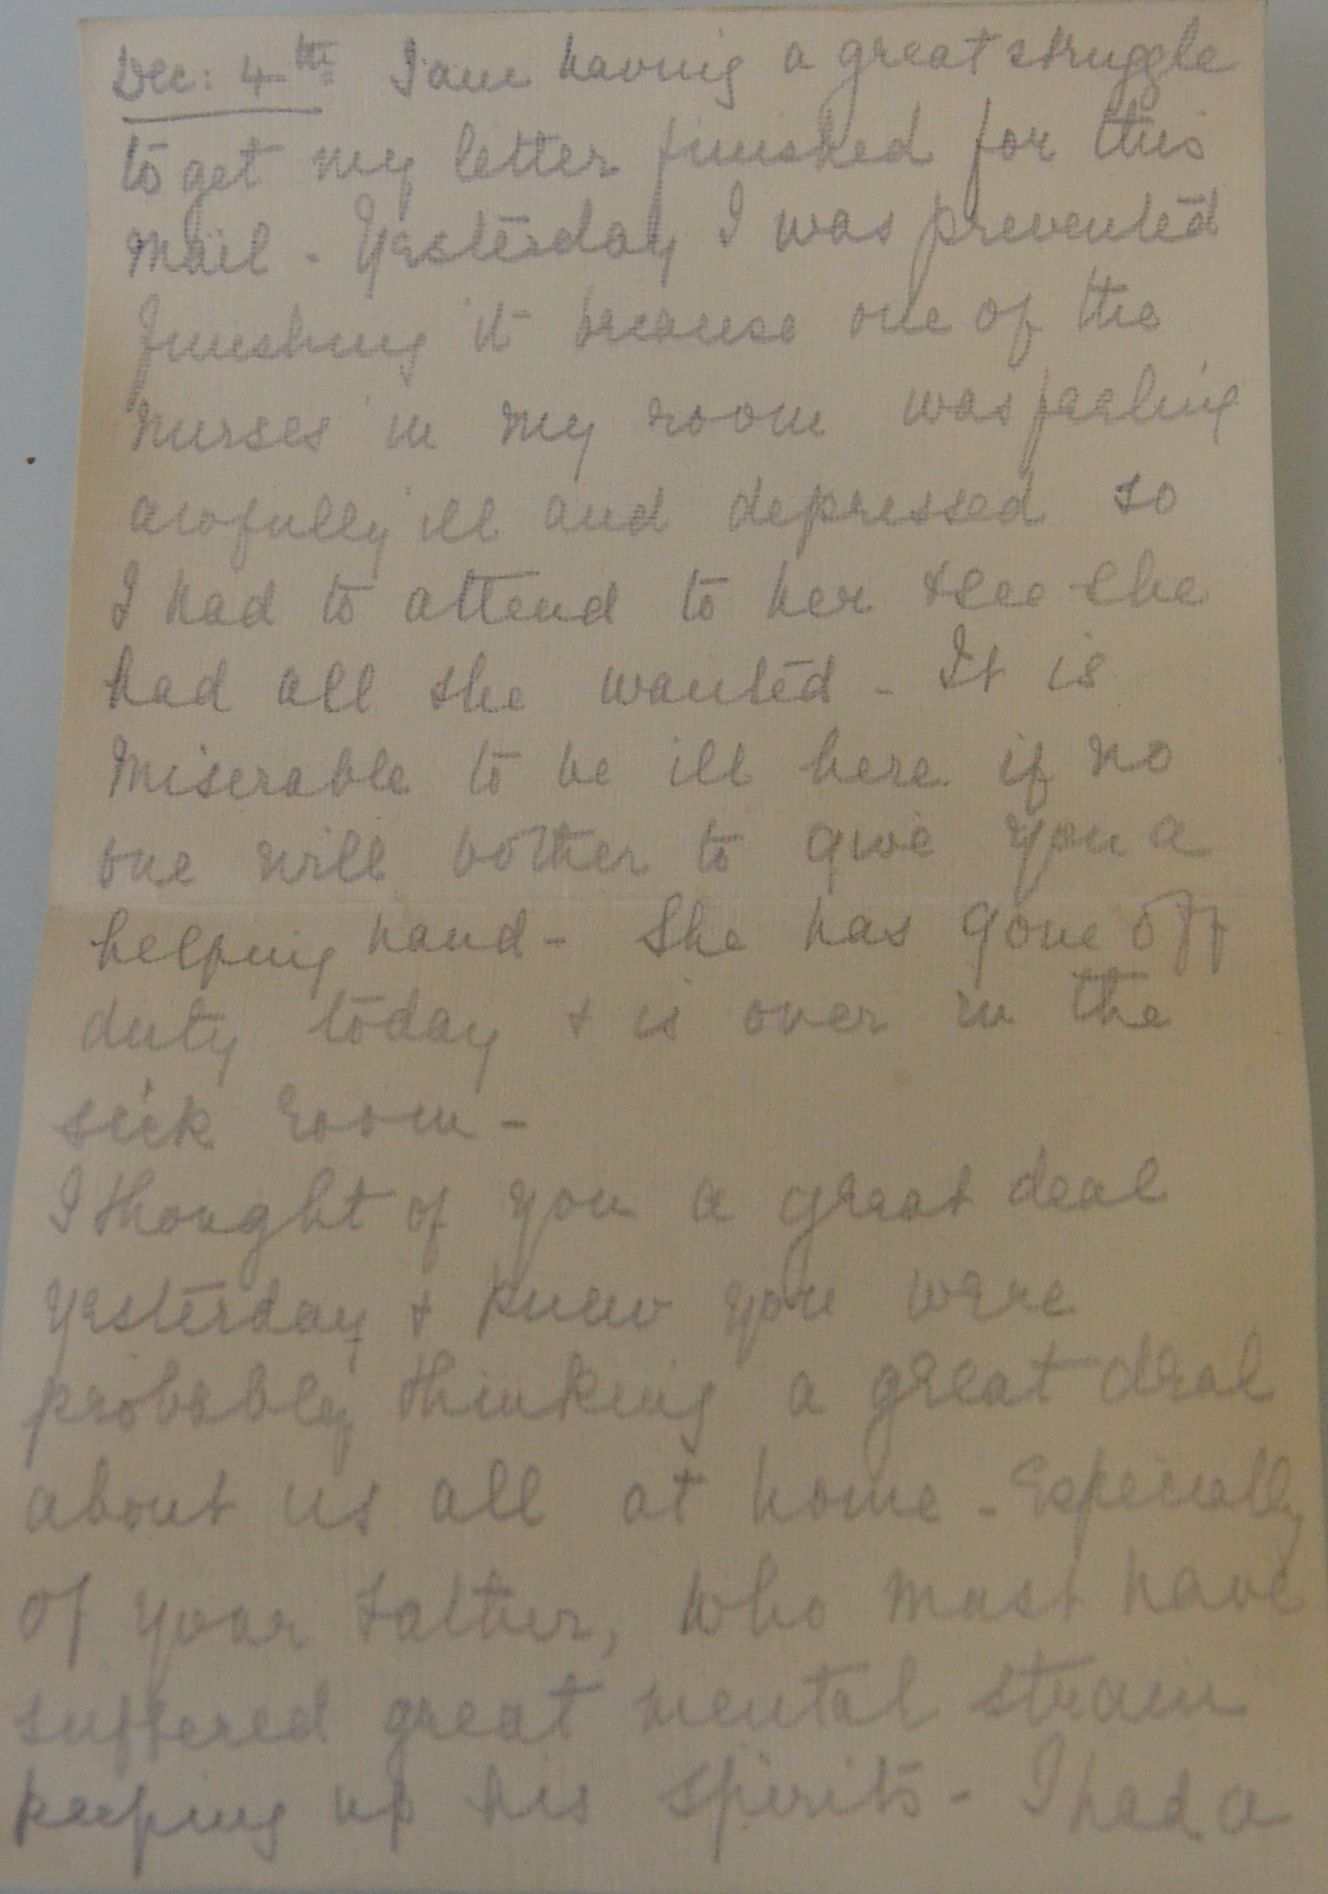 Dec: 4th I am having a great struggle
to get my letter finished for this
mail - Yesterday I was prevented
finishing it because one of the
nurses in my room was feeling
awfully ill and depressed so
I had to attend to her & see she
had all she wanted - It is
miserable to be ill here if no
one will bother to give you a
helping hand - She has gone off
duty today & is over in the
sick room -
I thought of you a great deal
yesterday & knew you were
probably thinking a great deal
about us all at home - Especially
of your Father, who must have
suffered great mental strain
keeping up his spirits - I had a